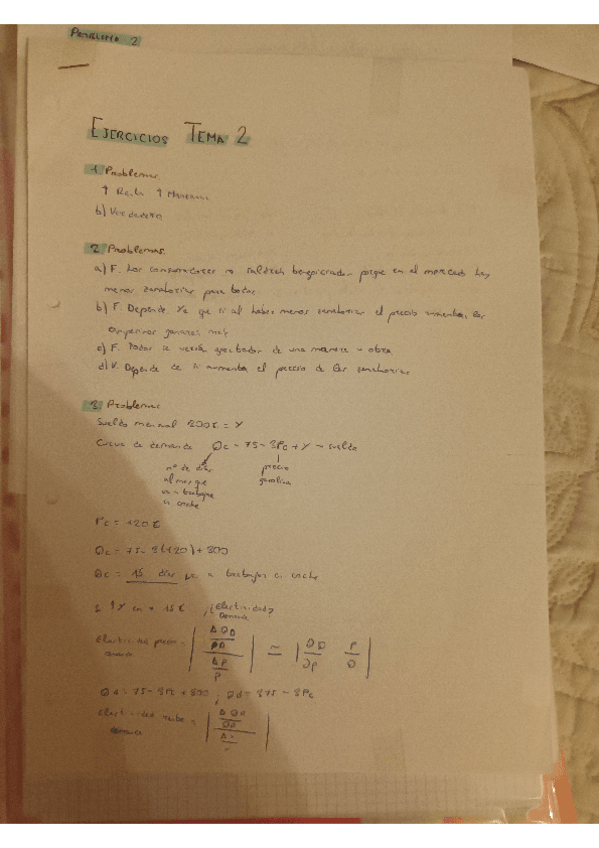 PROBLEMA 2
EJERCICIOS TEMA 2
1. Problemas.
↑ Renta ↑
b) Verdadero
2. Problemas.
a) F. Los consumidores no saldrán porque en el mercado hay
menos zanahorias para todos.
b) F. Depende ya que si al haber menos zanahorias el precio aumentan los
campesinos ganarán más
c) F. Todos se verán de una manera u otra
d) V. Depende de si aumenta el precio de las zanahorias
3. Problemas
Sueldo mensual 200€ = Y
Curva de demanda Qc = 75 - 3Pc + Y → sueldo
nº de días
al mes que
va a trabajar
en coche
precio
gasolina
Pc = 120€
Qc = 75 - 3(120) + 300
Qc = 15 días va a trabajar en coche
¿Elasticidad?
Elasticidad precio =
demanda
| ΔQD/QD / ΔP/P | = | ∂D/∂P P/Q |
Qd = 75 - 3Pc + 300 ; Qd = 375 - 3Pc
Elasticidad renta =
demanda